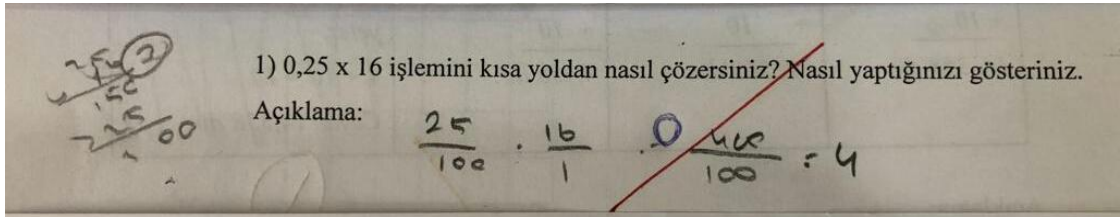 1) 0,25 x 16 işlemini kısa yoldan nasıl çözersiniz? Nasıl yaptığınızı gösteriniz.
Açıklama:
25/100 . 16/1 . 0 400/100 = 4